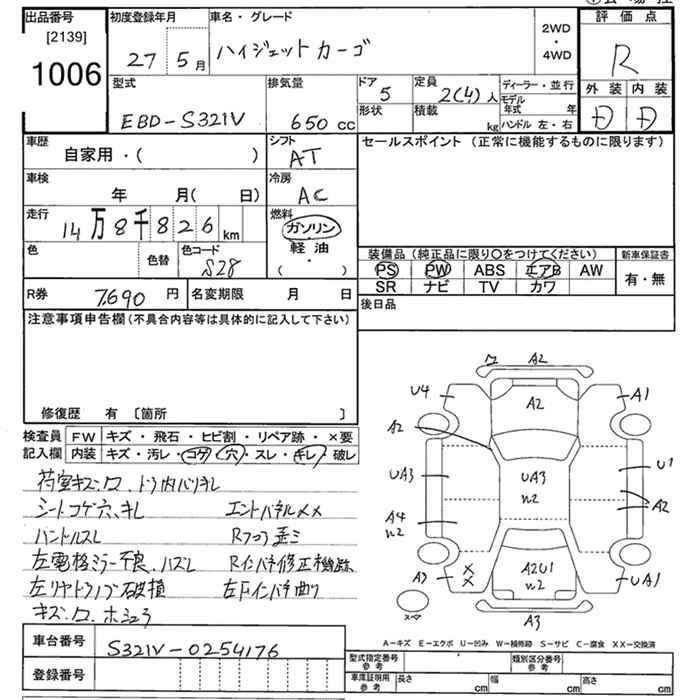 出品番号
[2139]
1006
初度登録年月
27 5月
車名・グレード
ハイジェットカーゴ
2WD
・
4WD
評価点
R
外装 内装
D D
型式
EBD-S321V
排気量
650 cc
ドア
5
形状
定員
2(4)人
積載
kg
ディーラー・並行
モデル年式 年
ハンドル 左・右
車歴
自家用・( )
シフト
AT
セールスポイント (正常に機能するものに限ります)
車検
年 月( 日)
冷房
AC
走行
14万8千826km
燃料
ガソリン
軽油
( ・ )
色
色替
色コード
S28
装備品 (純正品に限り○をつけてください)
PS PW ABS エアB AW
SR ナビ TV カワ
新車保証書
有・無
R券 7,690 円
名変期限 月 日
後日品
注意事項申告欄 (不具合内容等は具体的に記入して下さい)
修復歴 有 [箇所 ]
検査員記入欄
FW キズ・飛石・ヒビ割・リペア跡・×要
内装 キズ・汚レ・コゲ・穴・スレ・キレ・破レ
シートコゲ穴、キレ
ハンドルスレ
左電格ミラー不良、ハズレ Rインパネ修正機跡
左リヤドアノブ破損 左Fインパネ曲り
車台番号 S321V-0254176
登録番号
ワ A2
U4 A1
A2
A2
UA3 UA3 U1
w2
A4 A2
w2
A3 A2U1 UA1
w2
×
×
A3
A-キズ E-エクボ U-凹み W-補修跡 S-サビ C-腐食 XX-交換済
型式指定番号
参考
類別区分番号
参考
車庫証明用
参考
長さ cm 幅 cm 高さ cm